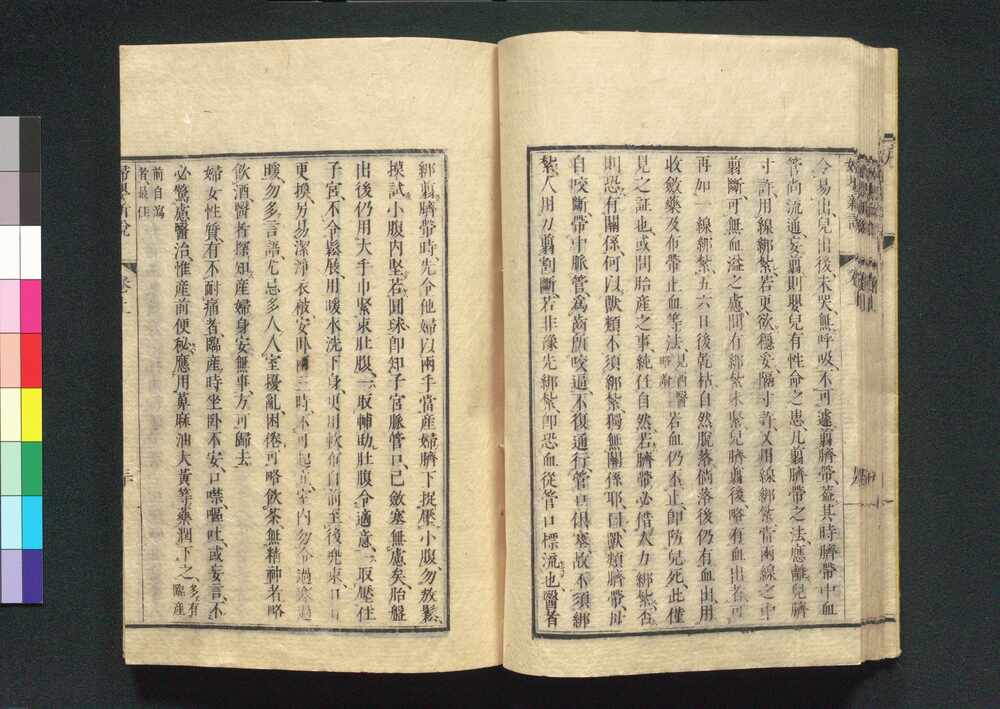 令易出兒出後未哭無呼吸不可遽翦臍帶蓋其時臍帶中血
管尚流通妄翦則嬰兒有性命之患凡翦臍帶之法應離兒臍
寸許用線綁紮若更欲穩妥隔寸許又用線綁紮當兩線之中
翦斷可無血溢之慮間有綁紮未緊兒臍翦後略有血出者可
再加一線綁紮五六日後乾枯自然脫落倘落後仍有血出用
收斂藥及布帶止血等法見西醫略論若血仍不止卽防兒死此僅
見之証也或問胎產之事純任自然若臍帶必借人力綁紮否
則恐有關係何以獸類不須綁紮獨無關係耶曰獸類臍帶母
自咬斷帶中脈管爲齒所咬逼不復通行管口俱塞故不須綁
紮人用刀翦割斷若非豫先綁紮卽恐血從管口標流也醫者
綁翦臍帶時先令他婦以兩手當產婦臍下捉壓小腹勿放鬆
摸試小腹內堅若圓球卽知子宮脈管口已斂塞無慮矣胎盤
出後仍用大手巾緊束肚腹一取輔助肚腹令適意一取壓住
子宮不令鬆展用暖水洗下身更用軟布自前至後兜束
更換另易潔淨衣被安臥兩三時不可起立室內勿令過寒過
暖勿多言語尤忌多人入室擾亂困倦可略飲茶無精神者略
飲酒醫者探知產婦身安無事方可歸去
婦女性質有不耐痛者臨產時坐臥不安口噤嘔吐或妄言不
必驚慮醫治惟產前便秘應用萆麻油大黃等藥潤下之多有臨產
前自瀉者最佳
婦嬰新說